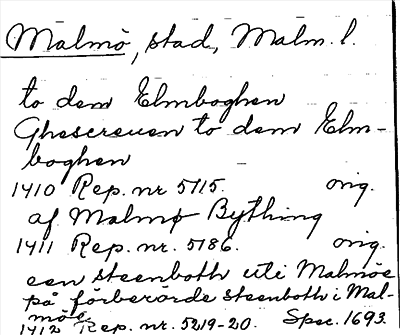 Malmö, stad, Malm. l.
to dem Elmboghen
Ghescreuen to dem Elm-
boghen
1410 Rep. nr 5115. orig.
af Malmø Bything
1411 Rep. nr. 5186. orig.
een steenboth uti Malmöe
på förberörde steenboth i Mal-
möe
1412 Rep. nr. 5219-20. Spec. 1693.